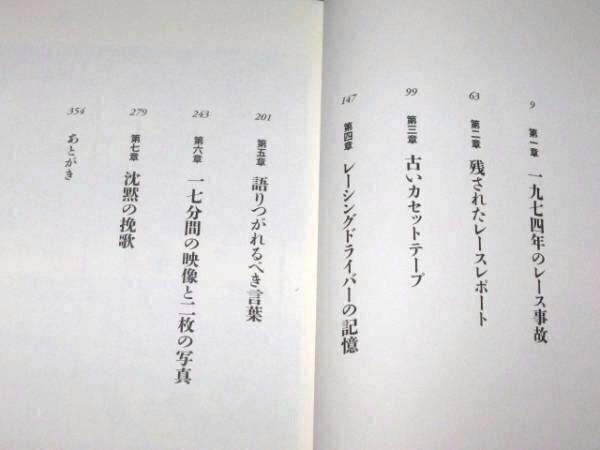 9 第一章 一九七四年のレース事故
63 第二章 残されたレースレポート
99 第三章 古いカセットテープ
147 第四章 レーシングドライバーの記憶
201 第五章 語りつがれるべき言葉
243 第六章 一七分間の映像と二枚の写真
279 第七章 沈黙の挽歌
354 あとがき